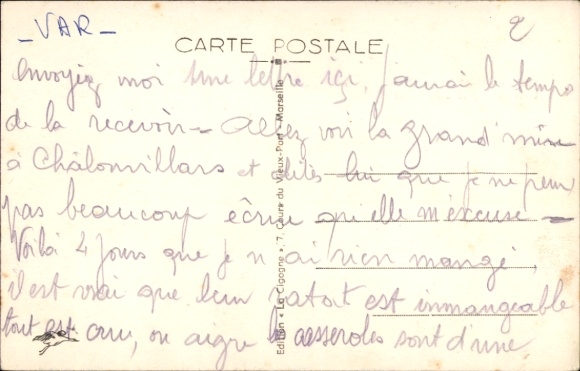 - VAR -
2
CARTE POSTALE
envoyiez moi une lettre içi, j'aurai le temps
de la recevoir - Allez voir la grand'mère
à Châlonvillars et dites lui que je ne peux
pas beaucoup écrire qu'elle m'excuse -
Voilà 4 jours que je n'ai rien mangé,
il est vrai que leur est immangeable
tout est cru, ou aigre les casseroles sont d'une
Edition • La Cigogne • 7, Cours du Vieux-Port - Marseille